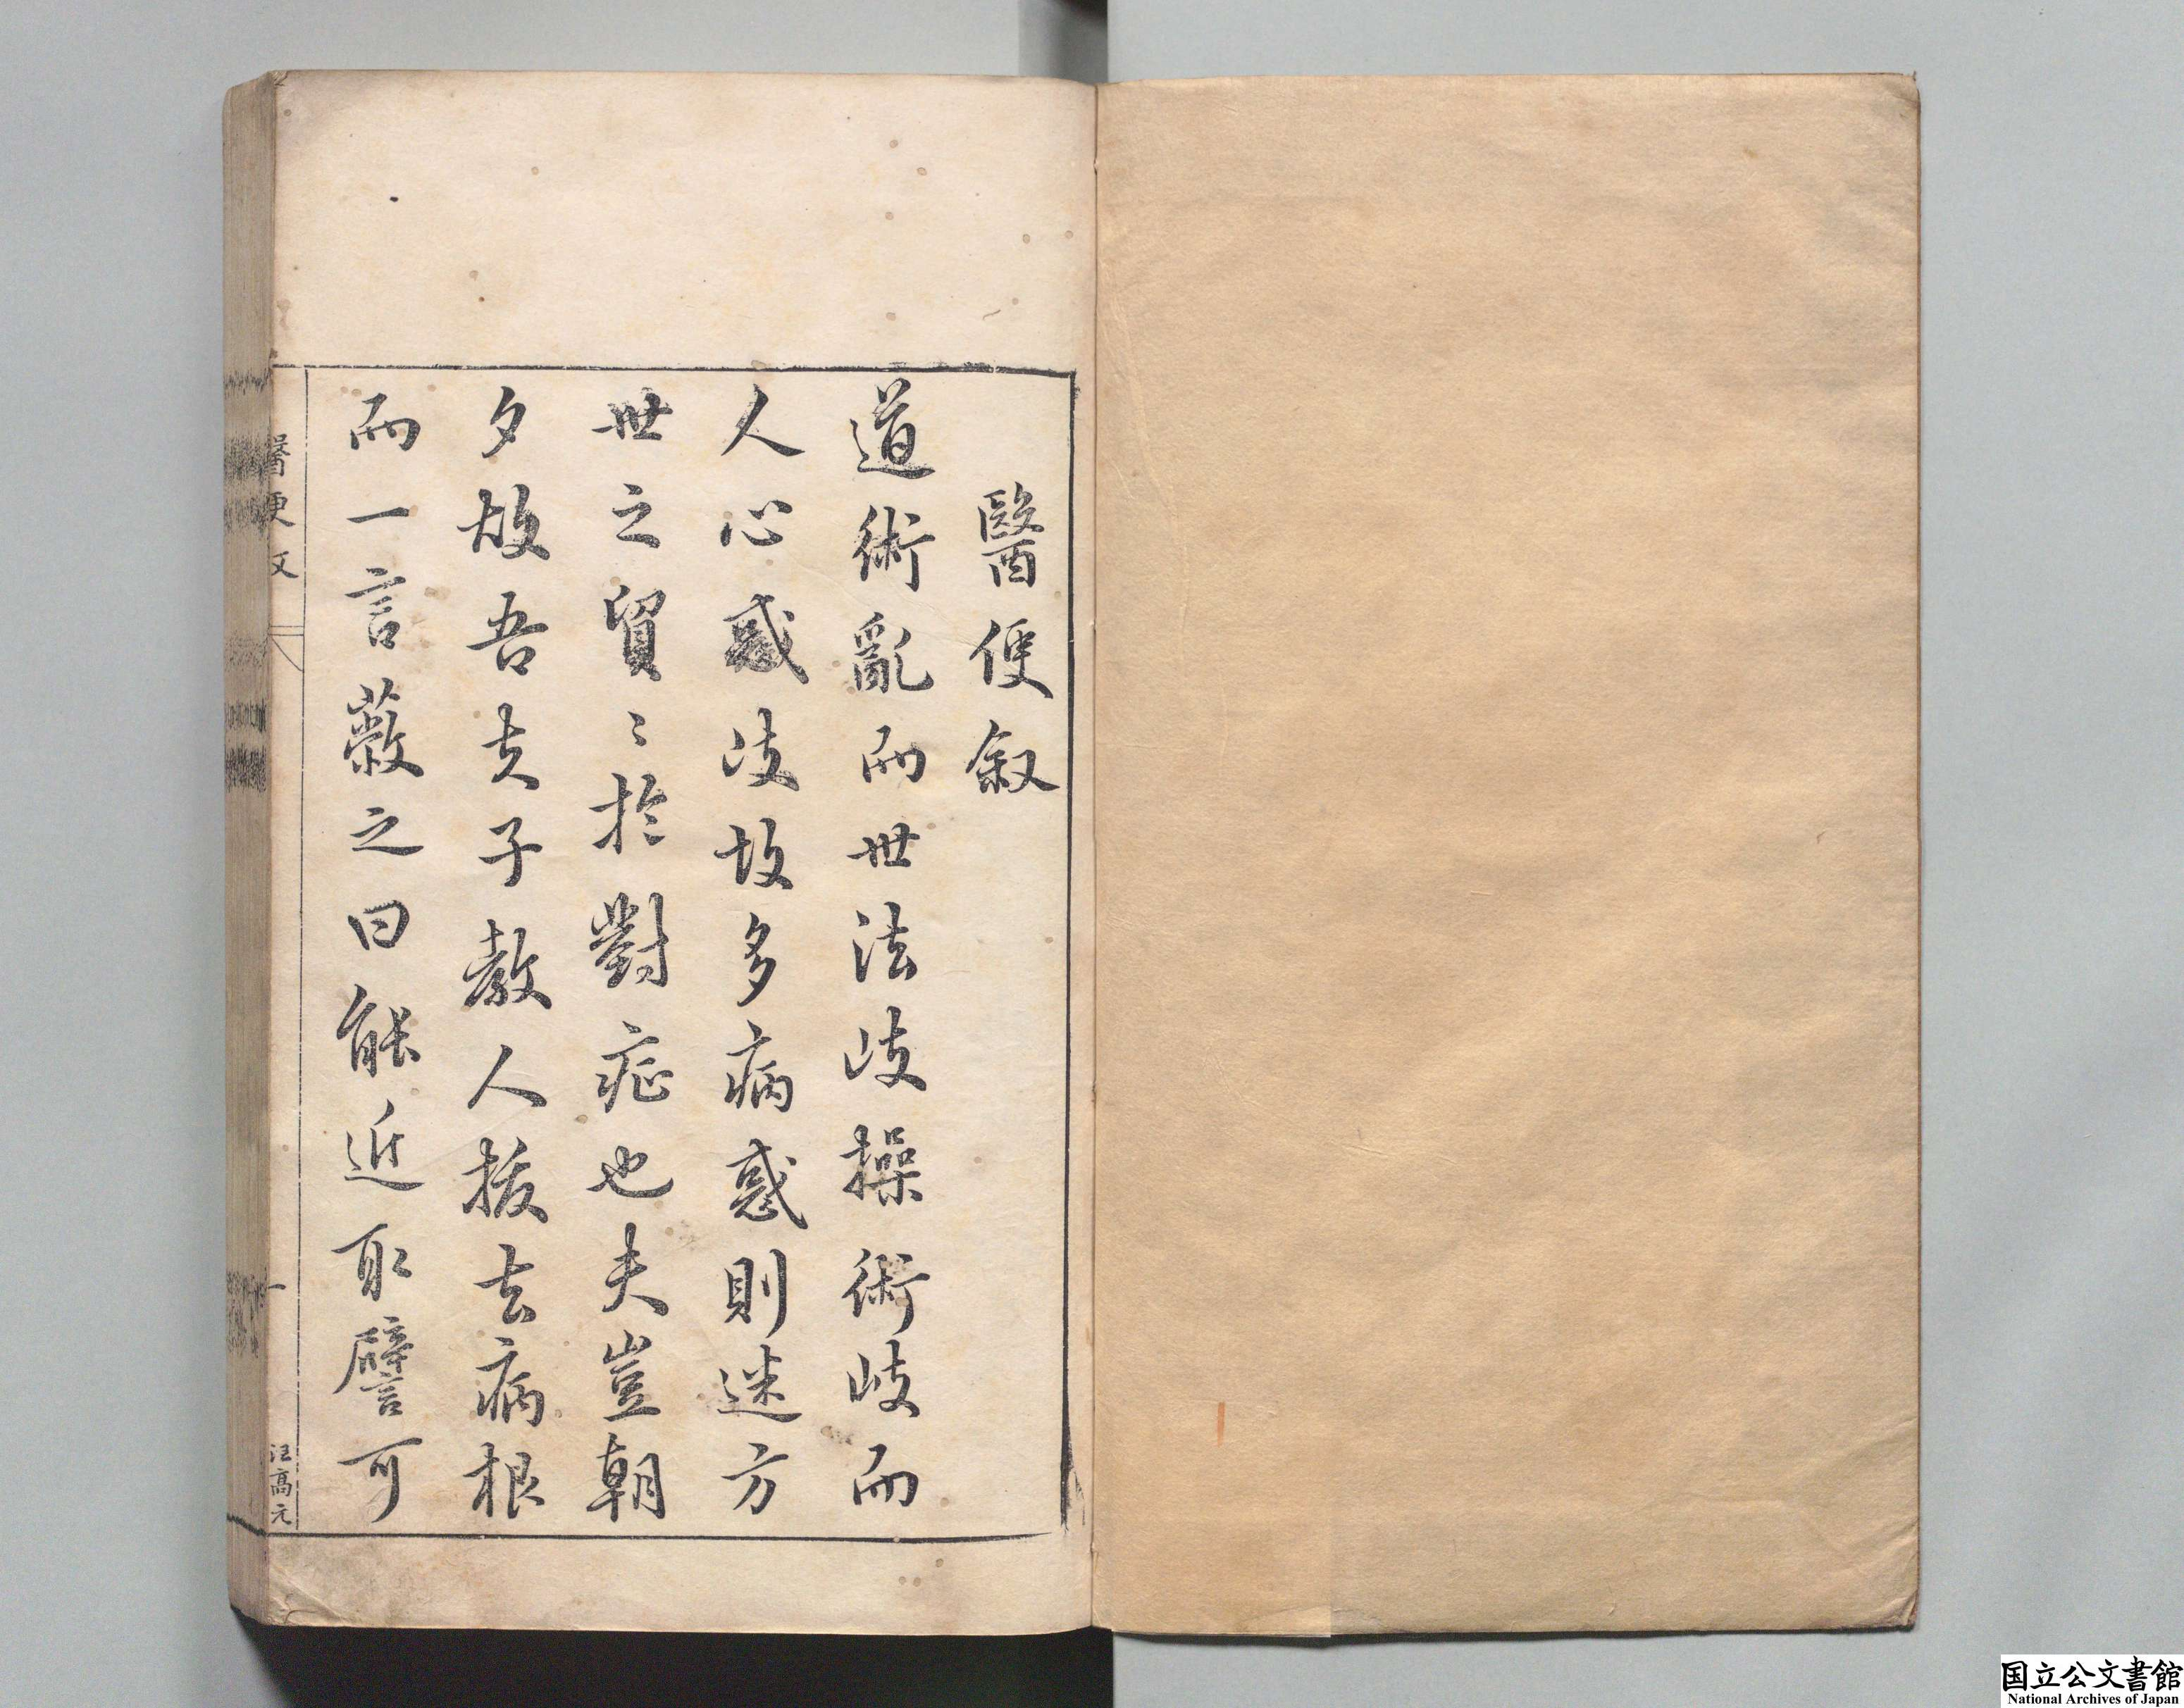 醫便叙
道術亂而世法歧操術歧而
人心惑歧故多病惑則迷方
世之貿〻於對症也夫豈朝
夕故吾夫子教人拔去病根
而一言蔽之曰能近取譬可
醫便文
一
汪高元
国立公文書館
National Archives of Japan